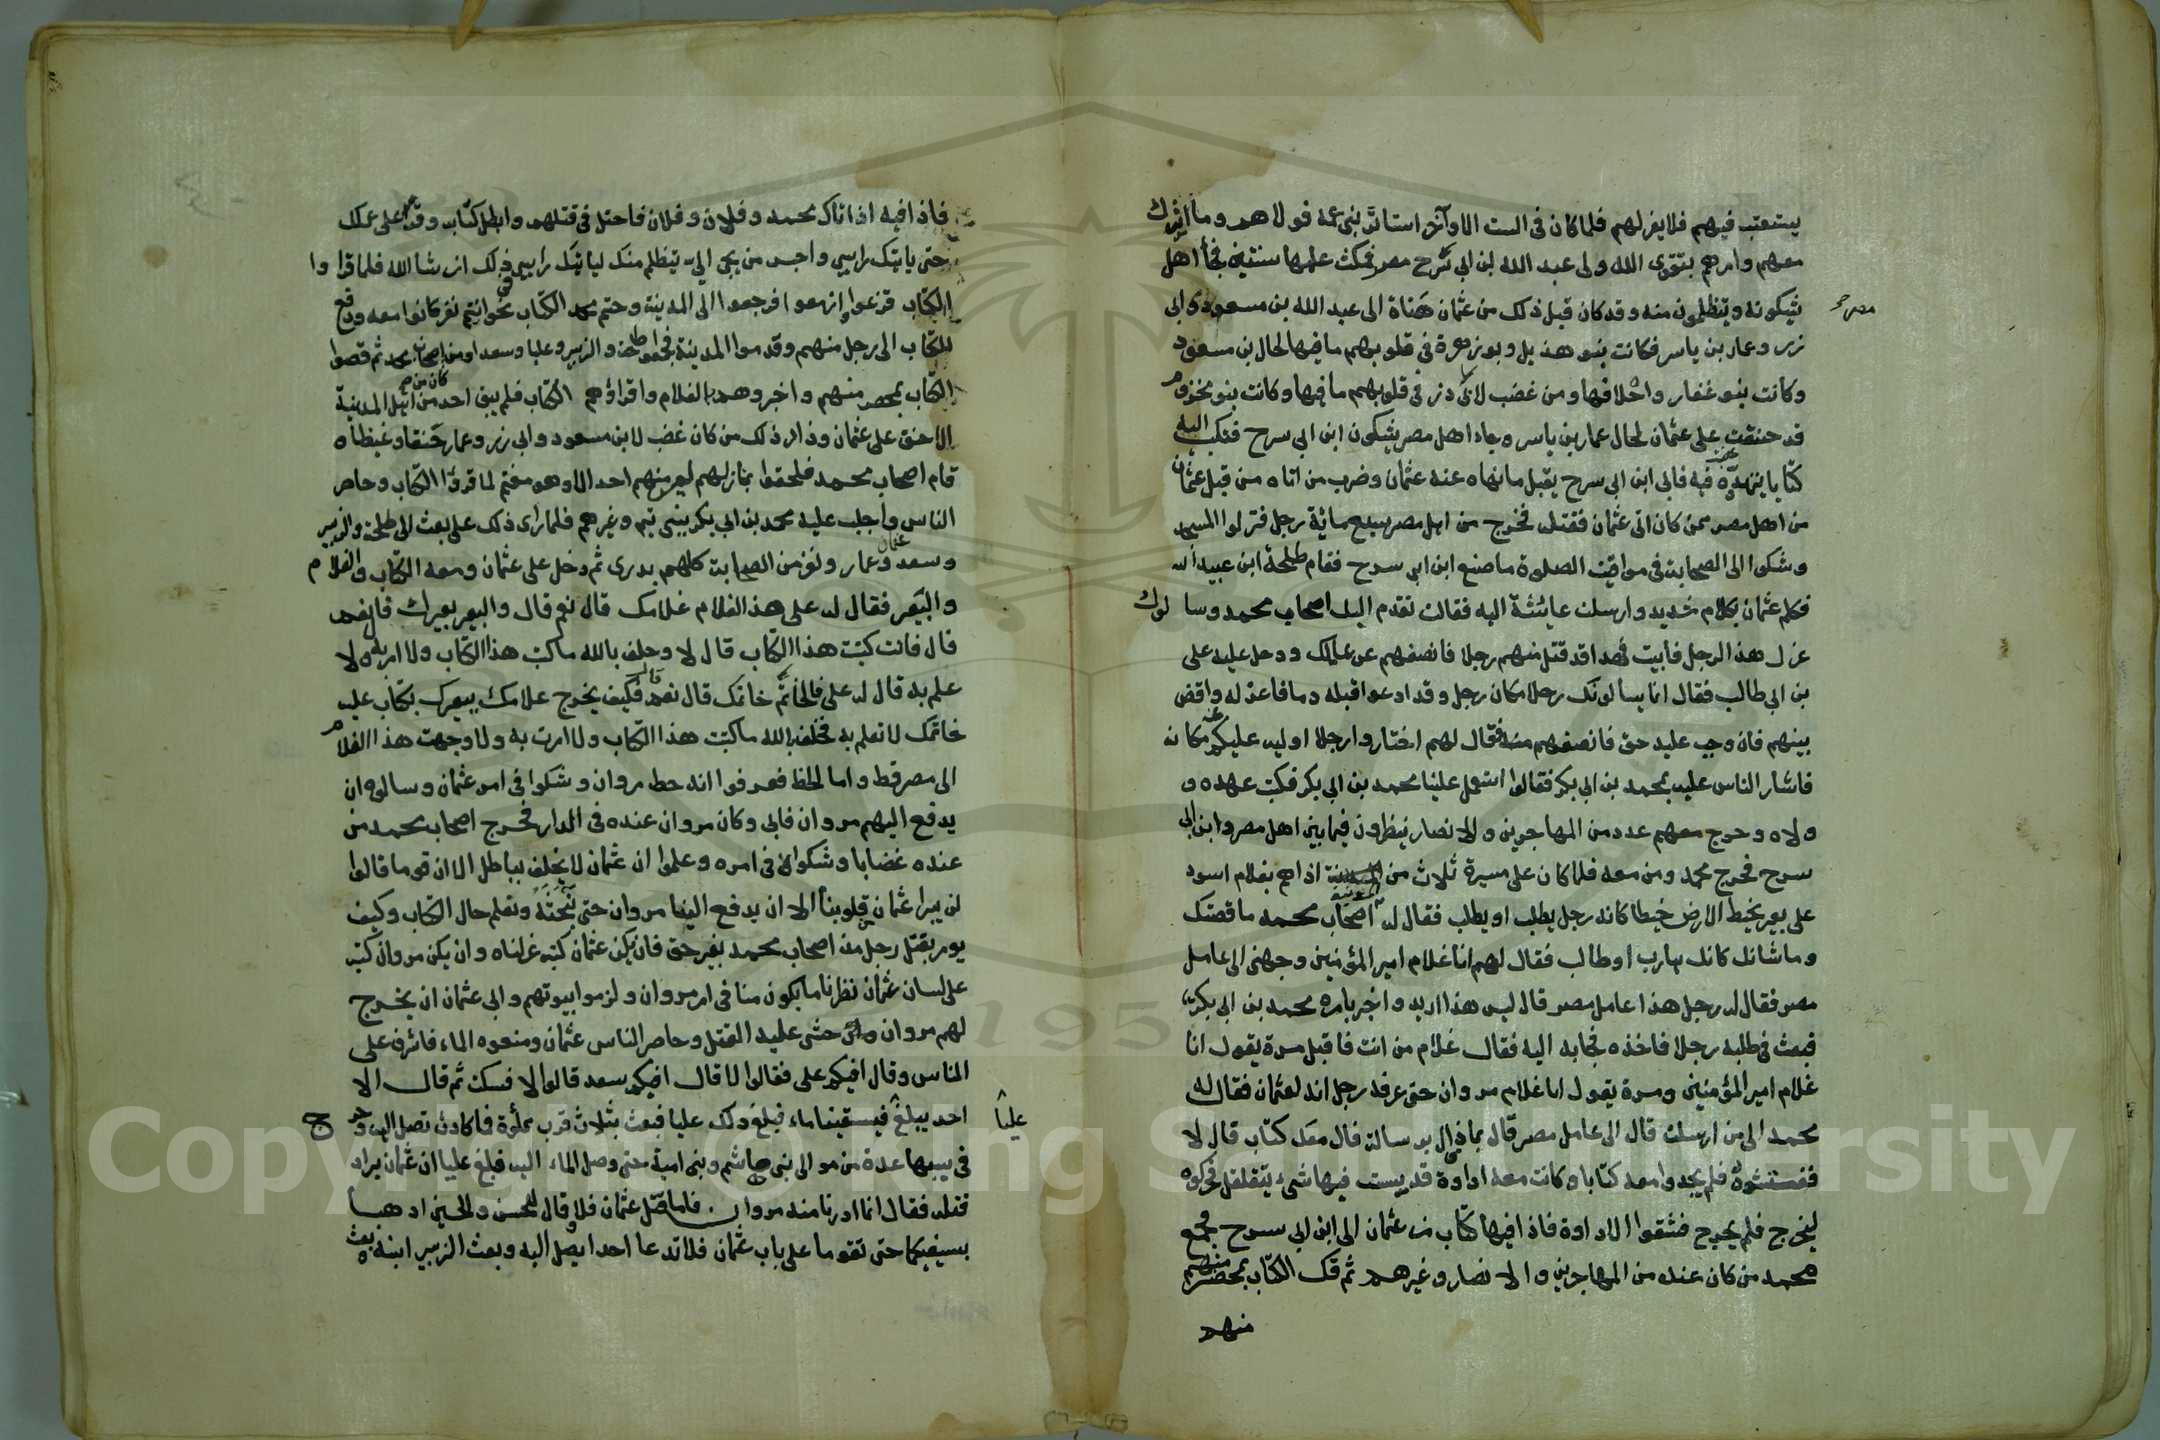 يستعتب فيهم فلا يعزلهم فلما كان في الست الاواخر استاثر بني عمه فولاهم وما اشرك
معهم وامرهم بتقوى الله ولى عبد الله بن ابي سرح مصر فمكث عليها سنتين فجأ اهل
مصر
يشكونه ويتظلمون منه وقد كان قبل ذلك من عثمان هناة الى عبد الله بن مسعود وابي
زر وعمار بن ياسر فكانت بنو هذيل وبو زهرة في قلوبهم ما فيها لحال بن مسعود
وكانت بنو غفار واحلافها ومن غضب لابي ذر في قلوبهم ما فيها وكانت بنو مخزوم
قد حنقت على عثمان لحال عمار بن ياسر وجاء اهل مصر يشكون ابن ابي سرح فكتب اليه
كتابا يتهدده فيه فابى ابن ابي سرح يقبل ما نهاه عنه عثمان وضرب من اتاه من قبل عثمان
من اهل مصر ممن كان اتى عثمان فقتله فخرج من اهل مصر سبع مائة رجل فنزلوا المسجد
وشكوا الى الصحابة في مواقيت الصلوة ما صنع ابن ابي سرح فقام طلحة ابن عبيد الله
فكلم عثمان بكلام شديد وارسلت عايشة اليه فقالت تقدم اليك اصحاب محمد وسالوك
عزل هذا الرجل فابيت فهذا قد قتل منهم رجلا فانصفهم من عاملك ودخل عليه على
بن ابي طالب فقال انما يسألونك رجلا مكان رجل وقد ادعوا قبله دما فاعزله واقض
بينهم فان وجب عليه حق فانصفهم منه فقال لهم اختاروا رجلا اوليه عليكم مكانه
فاشار الناس عليه بمحمد بن ابي بكر فقالوا استعمل علينا محمد بن ابي بكر فكتب عهده و
ولاه وخرج معهم عدد من المهاجرين والانصار ينظرون فيما بين اهل مصر وابن ابي
سرح فخرج محمد ومن معه فلما كان على مسيرة ثلاث من المدينة اذا هم بغلام اسود
على بعير يخبط الارض خبطا كانه رجل يطلب او يطلب فقال له اصحاب محمد ما قصتك
وما شانك كانك هارب او طالب فقال لهم انا غلام امير المؤمنين وجهني الى عامل
مصر فقال له رجل هذا عامل مصر قال ليس هذا اريد واخبر بامره محمد بن ابي بكر
فبعث في طلبه رجلا فاخذه فجا به اليه فقال غلام من انت فاقبل مرة يقول انا
غلام امير المؤمنين ومرة يقول انا غلام مروان حتى عرفه رجل انه لعثمان فقال له
محمد الى من ارسلت قال الى عامل مصر قال بماذا قال برسالة قال معك كتاب قال لا
ففتشوه فلم يجدوا معه كتابا وكانت معه اداوة قد يبست فيها شيء يتقلقل فحركوه
ليخرج فلم يخرج فشقوا الاداوة فاذا فيها كتاب من عثمان الى ابن ابي سرح فجمع
محمد من كان عنده من المهاجرين والانصار وغيرهم ثم فك الكتاب بمحضر منهم
منهم
فاذا فيه اذا اتاك محمد وفلان وفلان فاحتل في قتلهم وابطل كتابه وقر على عملك
حتى ياتيك راييي واحبس من يجي الي يتظلم منك لياتيك راييي في ذلك ان شا الله فلما قراوا
الكتاب فزعوا وازمعوا فرجعوا الى المدينة وختم محمد الكتاب بخواتيم نفر كانوا معه ودفع
الكتاب الى رجل منهم وقدموا المدينة فجمعوا طلحة والزبير وعليا وسعد ومن كان من اصحاب محمد ثم فضوا
الكتاب بمحضر منهم واخبروهم بالغلام واقراؤهم الكتاب فلم يبق احد من اهل المدينة
الا حنق على عثمان وزاد ذلك من كان غضب لابن مسعود وابي زر وعمار حنقا وغيظا
قام اصحاب محمد فلحقوا بمنازلهم ليس منهم احد الا وهو مغتم لما قروا الكتاب وحاصر
الناس عثمان واجلب عليه محمد بن ابي بكر ببني تيم وغيرهم فلما راى ذلك على بعث الى طلحة والزبير
وسعد وعمار ونفر من الصحابة كلهم بدرى ثم دخل على عثمان ومعه الكتاب والغلام
والبعير فقال له على هذا الغلام غلامك قال نعم قال والبعير بعيرك قال نعم
قال فانت كتبت هذا الكتاب قال لا وحلف بالله ما كتب هذا الكتاب ولا امر به ولا
علم به قال له على فالخاتم خاتمك قال نعم قال فكيف يخرج غلامك ببعيرك بكتاب عليه
خاتمك لا تعلم به فحلف بالله ما كتبت هذا الكتاب ولا امرت به ولا وجهت هذا الغلام
الى مصر قط واما الخط فعرفوا انه خط مروان وشكوا في امر عثمان وسالوه ان
يدفع اليهم مروان فابى وكان مروان عنده في الدار فخرج اصحاب محمد من
عنده غضابا وشكوا في امره وعلموا ان عثمان لا يحلف بباطل الا ان قوما قالوا
لن يبرا عثمان من قلوبنا الا ان يدفع الينا مروان حتى نبحثه ونعلم حال الكتاب وكيف
يومر بقتل رجل من اصحاب محمد بغير حق فان يكن عثمان كتبه عزلناه وان يكن مروان كتبه
على لسان عثمان نظرنا ما يكون منا في امر مروان ولزموا بيوتهم وابى عثمان ان يخرج
لهم مروان وخشى عليه القتل وحاصر الناس عثمان ومنعوه الماء فاشرف على
الناس وقال افيكم على فقالوا لا قال افيكم سعد قالوا لا فسكت ثم قال الا
احد يبلغ عليا فيسقينا ماء فبلغ ذلك عليا فبعث بثلاث قرب مملؤة فما كادت تصل اليه وجرح
في سببها عدة من موالى بني هاشم وبني امية حتى وصل الماء اليه فبلغ عليا ان عثمان يراد
قتله فقال انما اردنا منه مروان فاما قتل عثمان فلا وقال للحسن وللحسين اذهبا
بسيفيكما حتى تقوما على باب عثمان فلا تدعا احدا يصل اليه وبعث الزبير ابنه وبعث